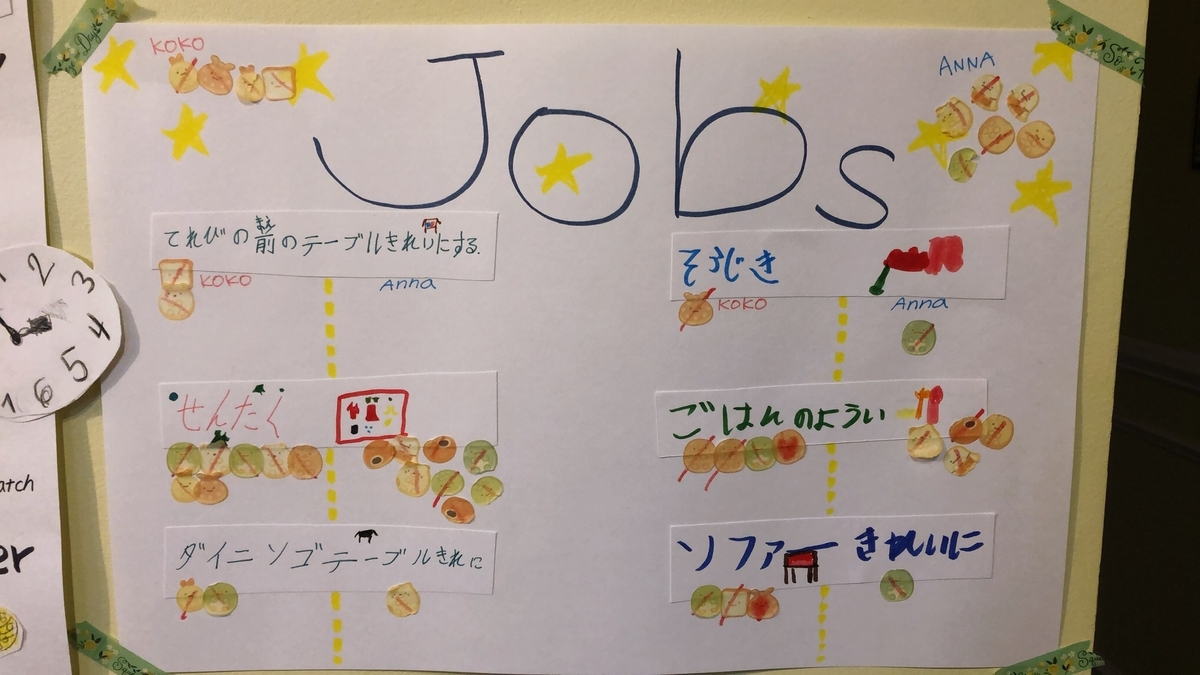 KOKO
Jobs
ANNA
てれびの前のテーブルきれいにする.
KOKO
Anna
そうじき
KOKO
Anna
せんたく
ごはんのようい
ダイニソゴテーブルきれに
ソファー きれいに
2
3
4
5
6
atch
er